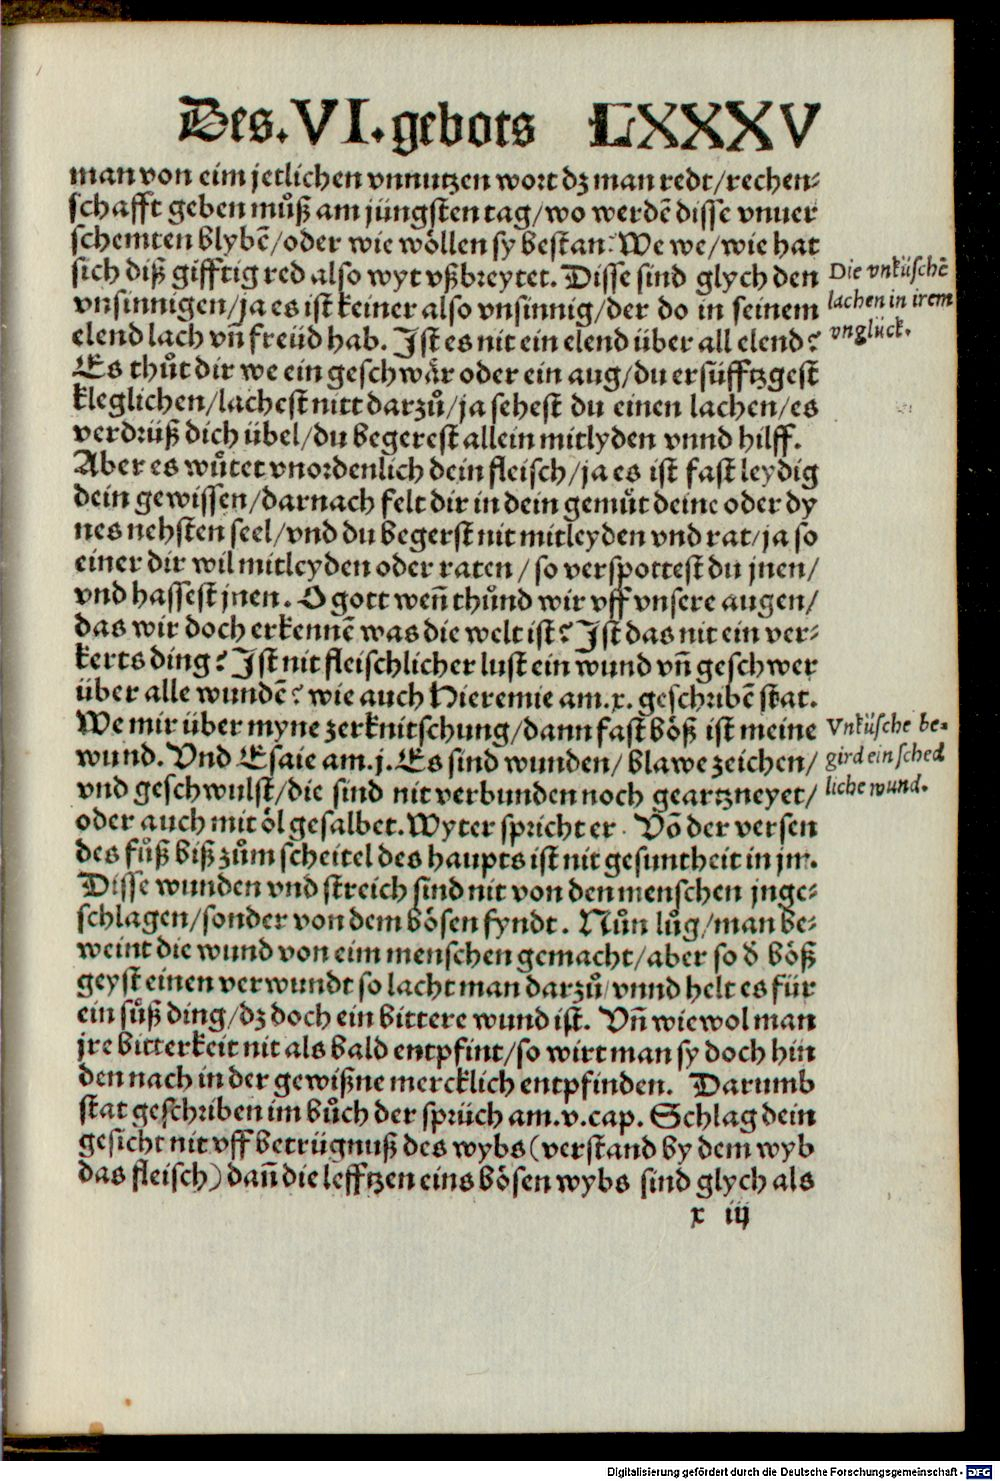 Des.VI.gebots LXXXV
man von eim jetlichen vnnutzen wort dz man redt/rechen⸗
schafft geben muͦß am jüngsten tag/wo werdē disse vnuer
schemten blybē/oder wie wöllen sy bestan. We we/wie hat
sich diß gifftig red also wyt vßbreytet. Disse sind glych den
vnsinnigen/ja es ist keiner also vnsinnig/der do in seinem
elend lach vn̄ freüd hab. Ist es nit ein elend über all elend?
Es thuͦt dir we ein geschwär oder ein aug/du ersüfftzgest
kleglichen/lachest nitt darzuͦ/ja sehest du einen lachen/es
verdrüß dich übel/du begerest allein mitlyden vnnd hilff.
Aber es wuͦtet vnordenlich dein fleisch/ja es ist fast leydig
dein gewissen/darnach felt dir in dein gemuͦt deine oder dy
nes nehsten seel/vnd du begerst nit mitleyden vnd rat/ja so
einer dir wil mitleyden oder raten/so verspottest du jnen/
vnd hassest jnen. O gott wen̄ thuͦnd wir vff vnsere augen/
das wir doch erkennē was die welt ist? Ist das nit ein ver⸗
kerts ding? Ist nit fleischlicher lust ein wund vn̄ geschwer
über alle wundē? wie auch Hieremie am.x. geschribē stat.
We mir über myne zerknitschung/dann fast böß ist meine
wund. Vnd Esaie am.j. Es sind wunden/blawe zeichen/
vnd geschwulst/die sind nit verbunden noch geartzneyet/
oder auch mit öl gesalbet. Wyter spricht er. Vō der versen
des fuͦß biß zuͦm scheitel des haupts ist nit gesuntheit in jm.
Disse wunden vnd streich sind nit von den menschen jnge⸗
schlagen/sonder von dem bösen fyndt. Nuͦn luͦg/man be⸗
weint die wund von eim menschen gemacht/aber so d̄ böß
geyst einen verwundt so lacht man darzuͦ/vnnd helt es für
ein suͦß ding/dz doch ein bittere wund ist. Vn̄ wiewol man
jre bitterkeit nit als bald entpfint/so wirt man sy doch hin
den nach in der gewißne mercklich entpfinden. Darumb
stat geschriben im buͦch der sprüch am.v.cap. Schlag dein
gesicht nit vff betrügnuß des wybs (verstand by dem wyb
das fleisch) dan̄ die lefftzen eins bösen wybs sind glych als
x iij
Die vnküschē
lachen in irem
vnglück.
Vnküsche be⸗
gird ein sched
liche wund.
Digitalisierung gefördert durch die Deutsche Forschungsgemeinschaft - DFG